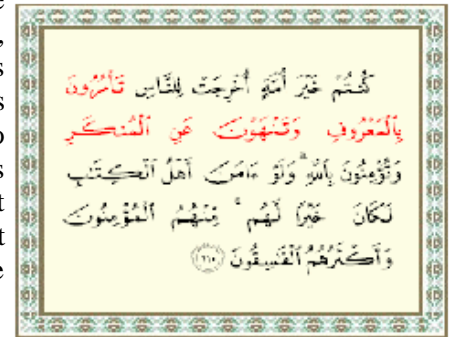 كُنتُمْ خَيْرَ أُمَّةٍ أُخْرِجَتْ لِلنَّاسِ تَأْمُرُونَ
بِالْمَعْرُوفِ وَتَنْهَوْنَ عَنِ الْمُنكَرِ
وَتُؤْمِنُونَ بِاللَّهِ ۗ وَلَوْ ءَامَنَ أَهْلُ الْكِتَٰبِ
لَكَانَ خَيْرًا لَّهُم ۚ مِّنْهُمُ الْمُؤْمِنُونَ
وَأَكْثَرُهُمُ الْفَٰسِقُونَ ﴿١١٠﴾